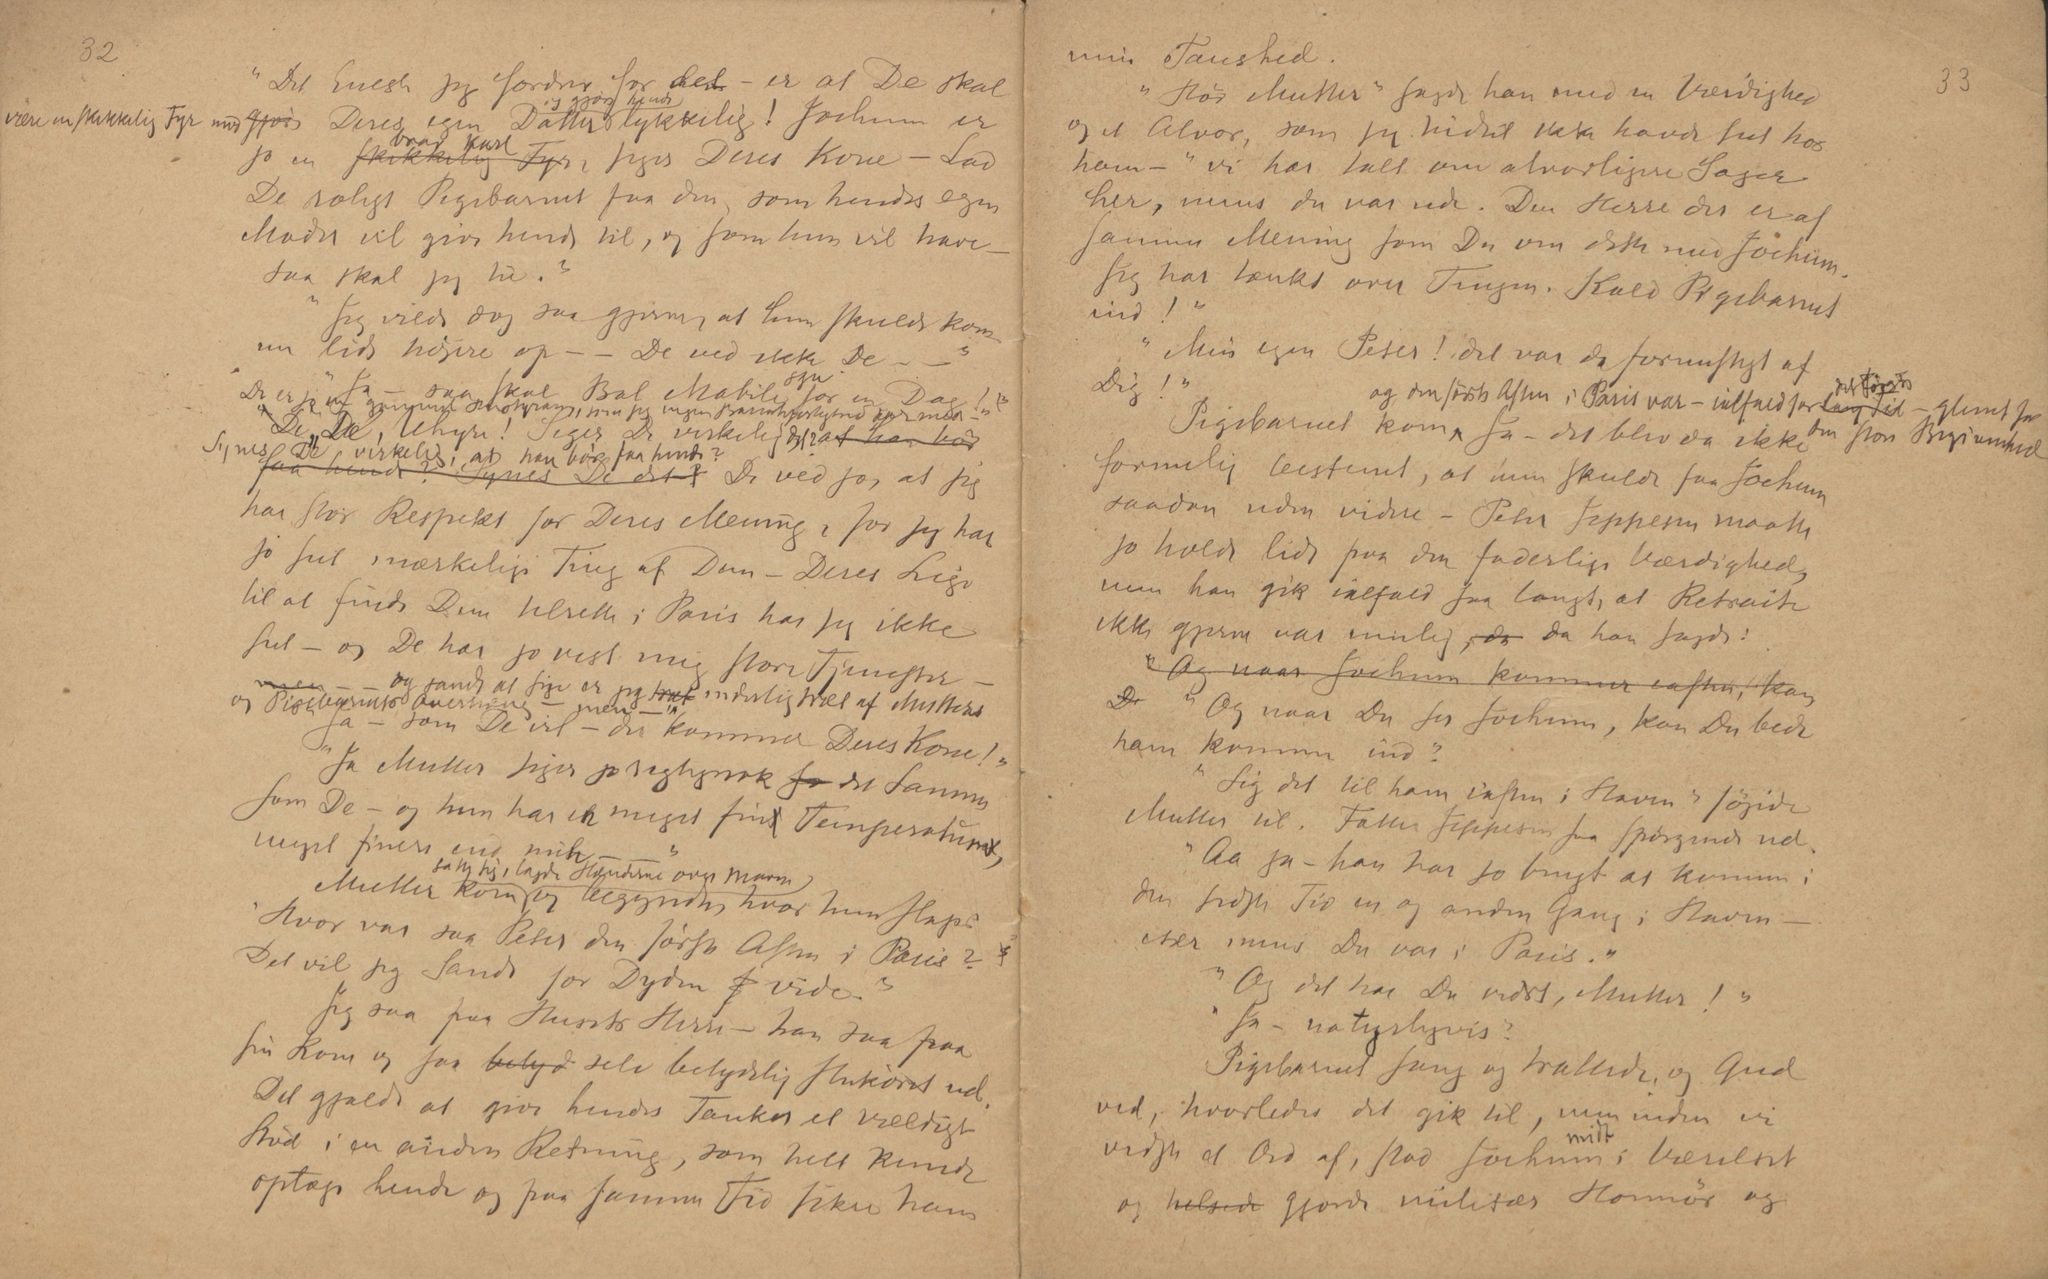 32
"Det Eneste jeg fordrer for det – er at De skal
være en skikkelig Fyr mod gjøre Deres egen Datter og gjøre hende lykkelig! Jochum er
jo en skikkelig Fyr, brav Karl siger Deres Kone – Lad
De roligt Pigebarnet faa den, som hendes egen
Moder vil give hende til, og som hun vil have –
saa skal jeg tie."
"Jeg vilde dog saa gjerne, at hun skulde kom-
me lidt højere op – – De ved ikke De – – "
"Ja – saa skal Bal Mabile for en Dag!"
De er jo en
"De, De, Uhyre! Siger De virkelig det? at han bør
Synes De virkelig, at han bør faa hende?
faa hende? Synes De det? De ved jo, at jeg
har stor Respekt for Deres Mening, for jeg har
jo set mærkelige Ting af Dem – Deres Lige
til at finde Dem tilrette i Paris har jeg ikke
set – og De har jo vist mig store Tjenester –
men – og sandt at sige er jeg træt inderlig træt af Mutters
og Pigebarnets Overhæng – men – "
Ja – som De vil – der kommer Deres Kone!"
"Ja Mutter siger jo rigtignok jo det Samme
som De – og hun har en meget fin Temperatur,
meget finere end mit – – "
Mutter kom, satte sig, lagde Hænderne over Maven og begyndte, hvor hun slap:
"Hvor var saa Peter den første Aften i Paris?
Det vil jeg Sande for Dyden vide."
Jeg saa paa Husets Herre – han saa paa
sin Kone og saa betyd selv betydelig slukøret ud.
Det gjaldt at give hendes Tanker et vældigt
Stød i en anden Retning, som helt kunde
optage hende og paa samme Tid sikre ham
33
min Taushed.
"Hør Mutter" sagde han med en Værdighed
og et Alvor, som jeg hidtil ikke havde set hos
ham – "vi har talt om alvorligere Sager
her, mens du var ude. Den Herre der er af
samme Mening som Du om dette med Jochum.
Jeg har tænkt over Tingen. Kald Pigebarnet
ind!"
"Min egen Peter! det var da fornuftigt af
Dig!"
og den første Aften i Paris var – ialfald for lang Tid det første – glemt for
Pigebarnet kom, Ja – det blev da ikke den store Begivenhed
formelig bestemt, at hun skulde faa Jochum
saadan uden videre – Peter Jeppesen maatte
jo holde lidt paa den faderlige Værdighed,
men han gik ialfald saa langt, at Retraite
ikke gjerne var mulig, da da han sagde:
"Og naar Jochum kommer iaften, kan
De "Og naar Du ser Jochum, kan Du bede
ham komme ind"
"Sig det til ham iaften i Haven" føjede
Mutter til. Fatter Jeppesen saa spørgende ud.
"Aa ja – han har jo brugt at komme i
den sidste Tid en og anden Gang i Haven –
især mens Du var i Paris."
"Og det har Du vidst, Mutter!"
"Ja – naturligvis"
Pigebarnet sang og trallede, og Gud
ved, hvorledes det gik til, men inden vi
vidste et Ord af, stod Jochum midt i Værelset
og helsede gjorde militær Honnør og